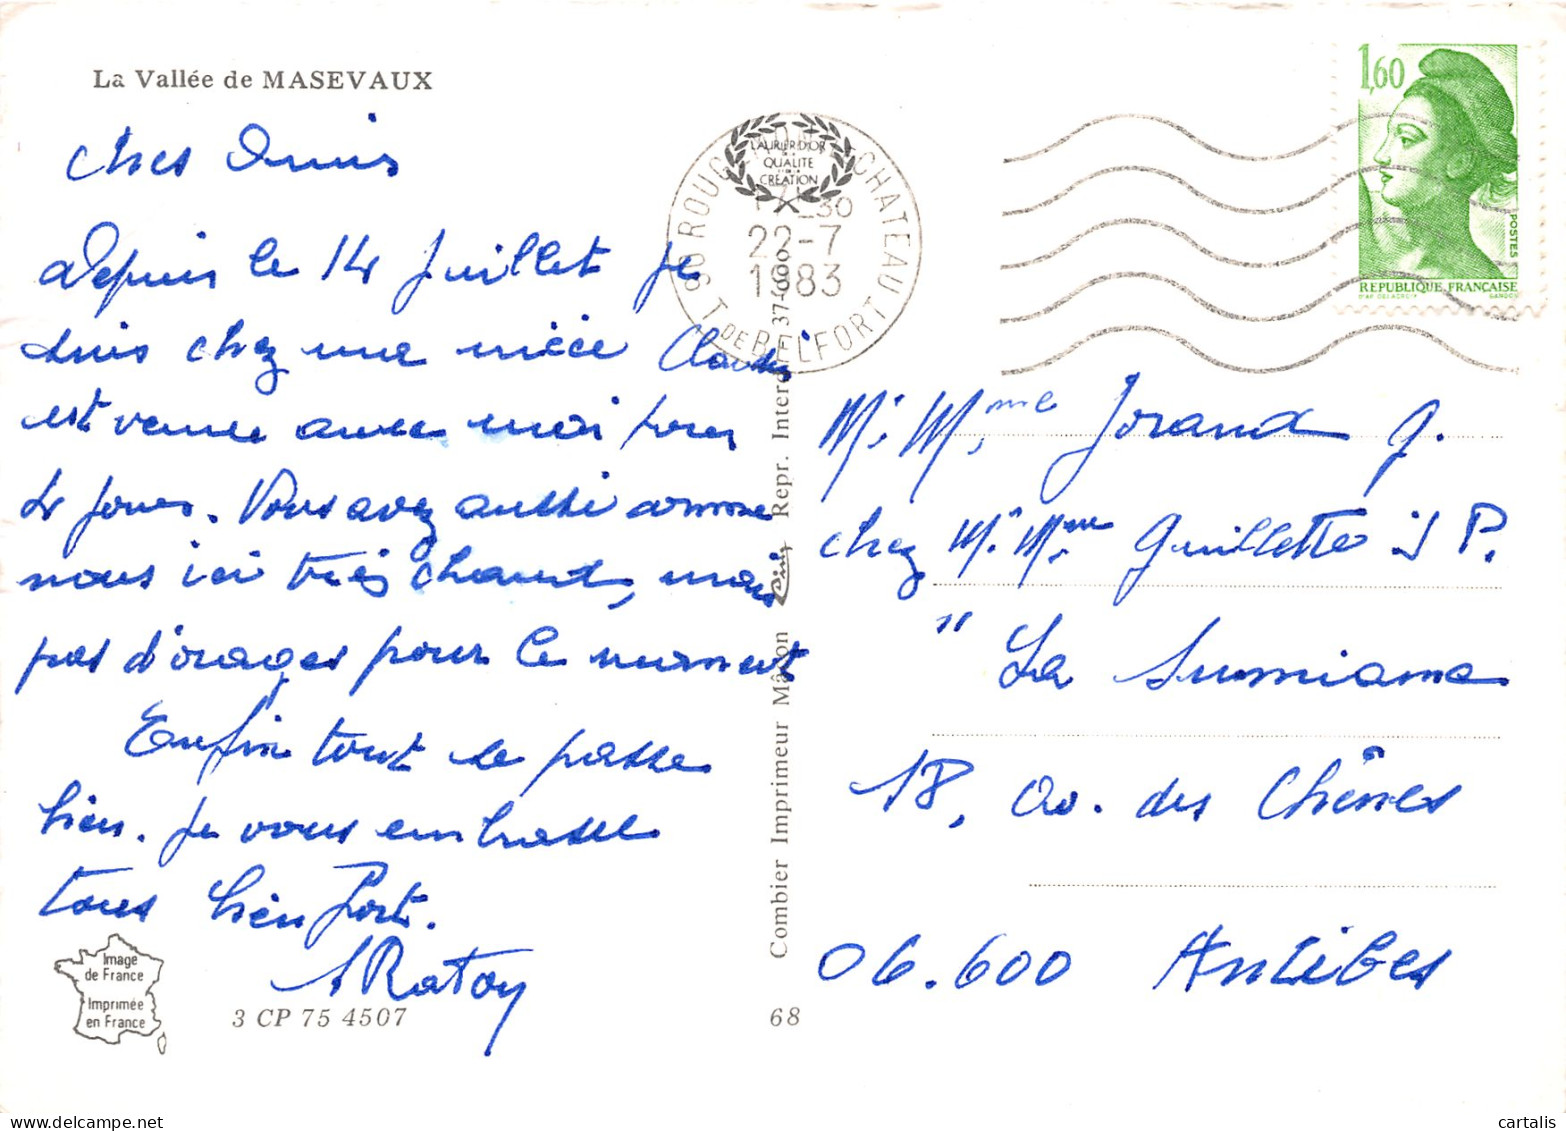 La Vallée de MASEVAUX
Chers Amis
Depuis le 14 Juillet je
suis chez une nièce Claudi
est venue avec moi pour
4 jours. Vous avez aussi comme
nous ici très chaud, mais
pas d'orages pour le moment
Enfin tout se passe
bien. Je vous embrasse
tous bien fort.
Ratoy
Image
de France
Imprimée
en France
3 CP 75 4507
68
Combier Imprimeur Mâcon Cim Repr. Interd. 37-
LAURIER D'OR
DE LA
QUALITÉ
ET DE LA
CRÉATION
90 ROUG CHATEAU
T DE BELFORT
30
22-7
1983
1,60
POSTES
REPUBLIQUE FRANÇAISE
D'AP. DELACROIX GANDON
M. Mme Jorand J.
chez M. Mme Guillette J P.
" La Sumiama
18, av. des Chênes
06.600 Antibes
cartalis